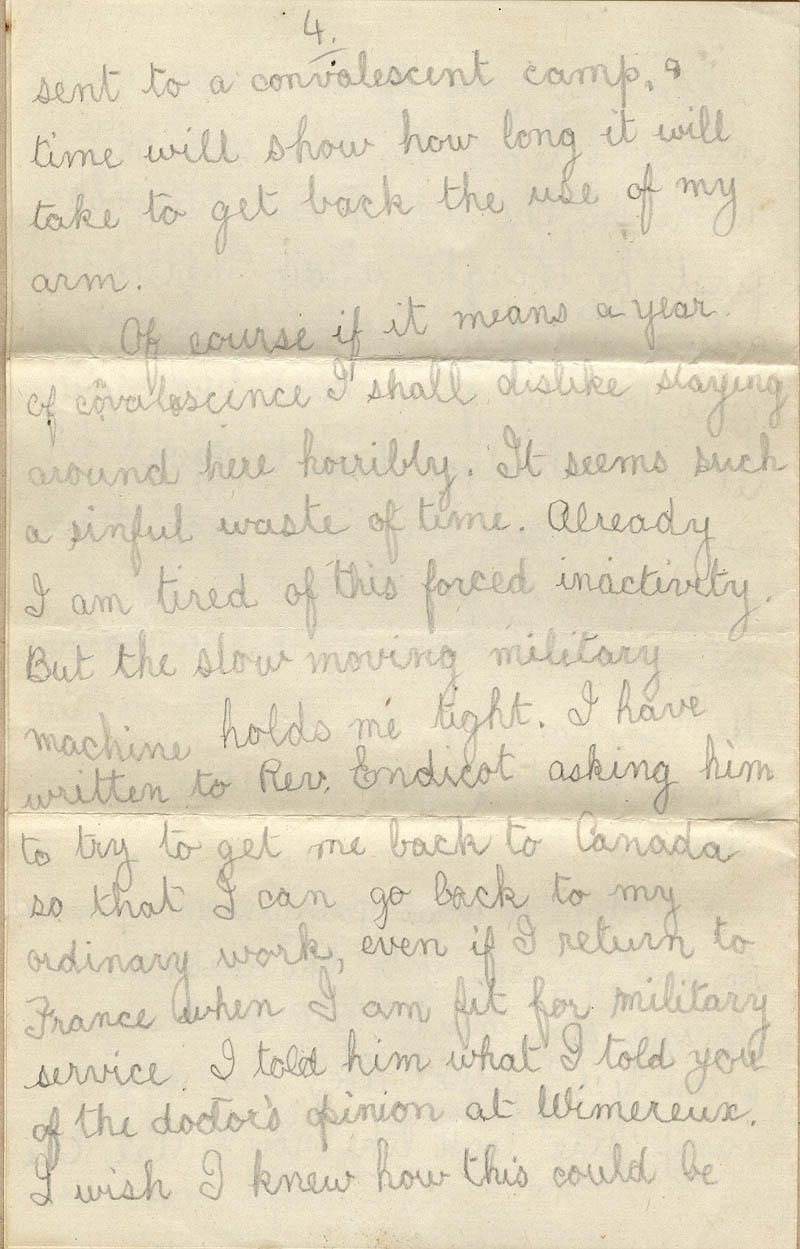 4.
sent to a convalescent camp, &
time will show how long it will
take to get back the use of my
arm.
Of course if it means a year
of covalescence I shall dislike staying
around here horribly. It seems such
a sinful waste of time. Already
I am tired of this forced inactivity.
But the slow moving military
machine holds me tight. I have
written to Rev. Endicot asking him
to try to get me back to Canada
so that I can go back to my
ordinary work, even if I return to
France when I am fit for military
service. I told him what I told you
of the doctor's opinion at Wimereux.
I wish I knew how this could be